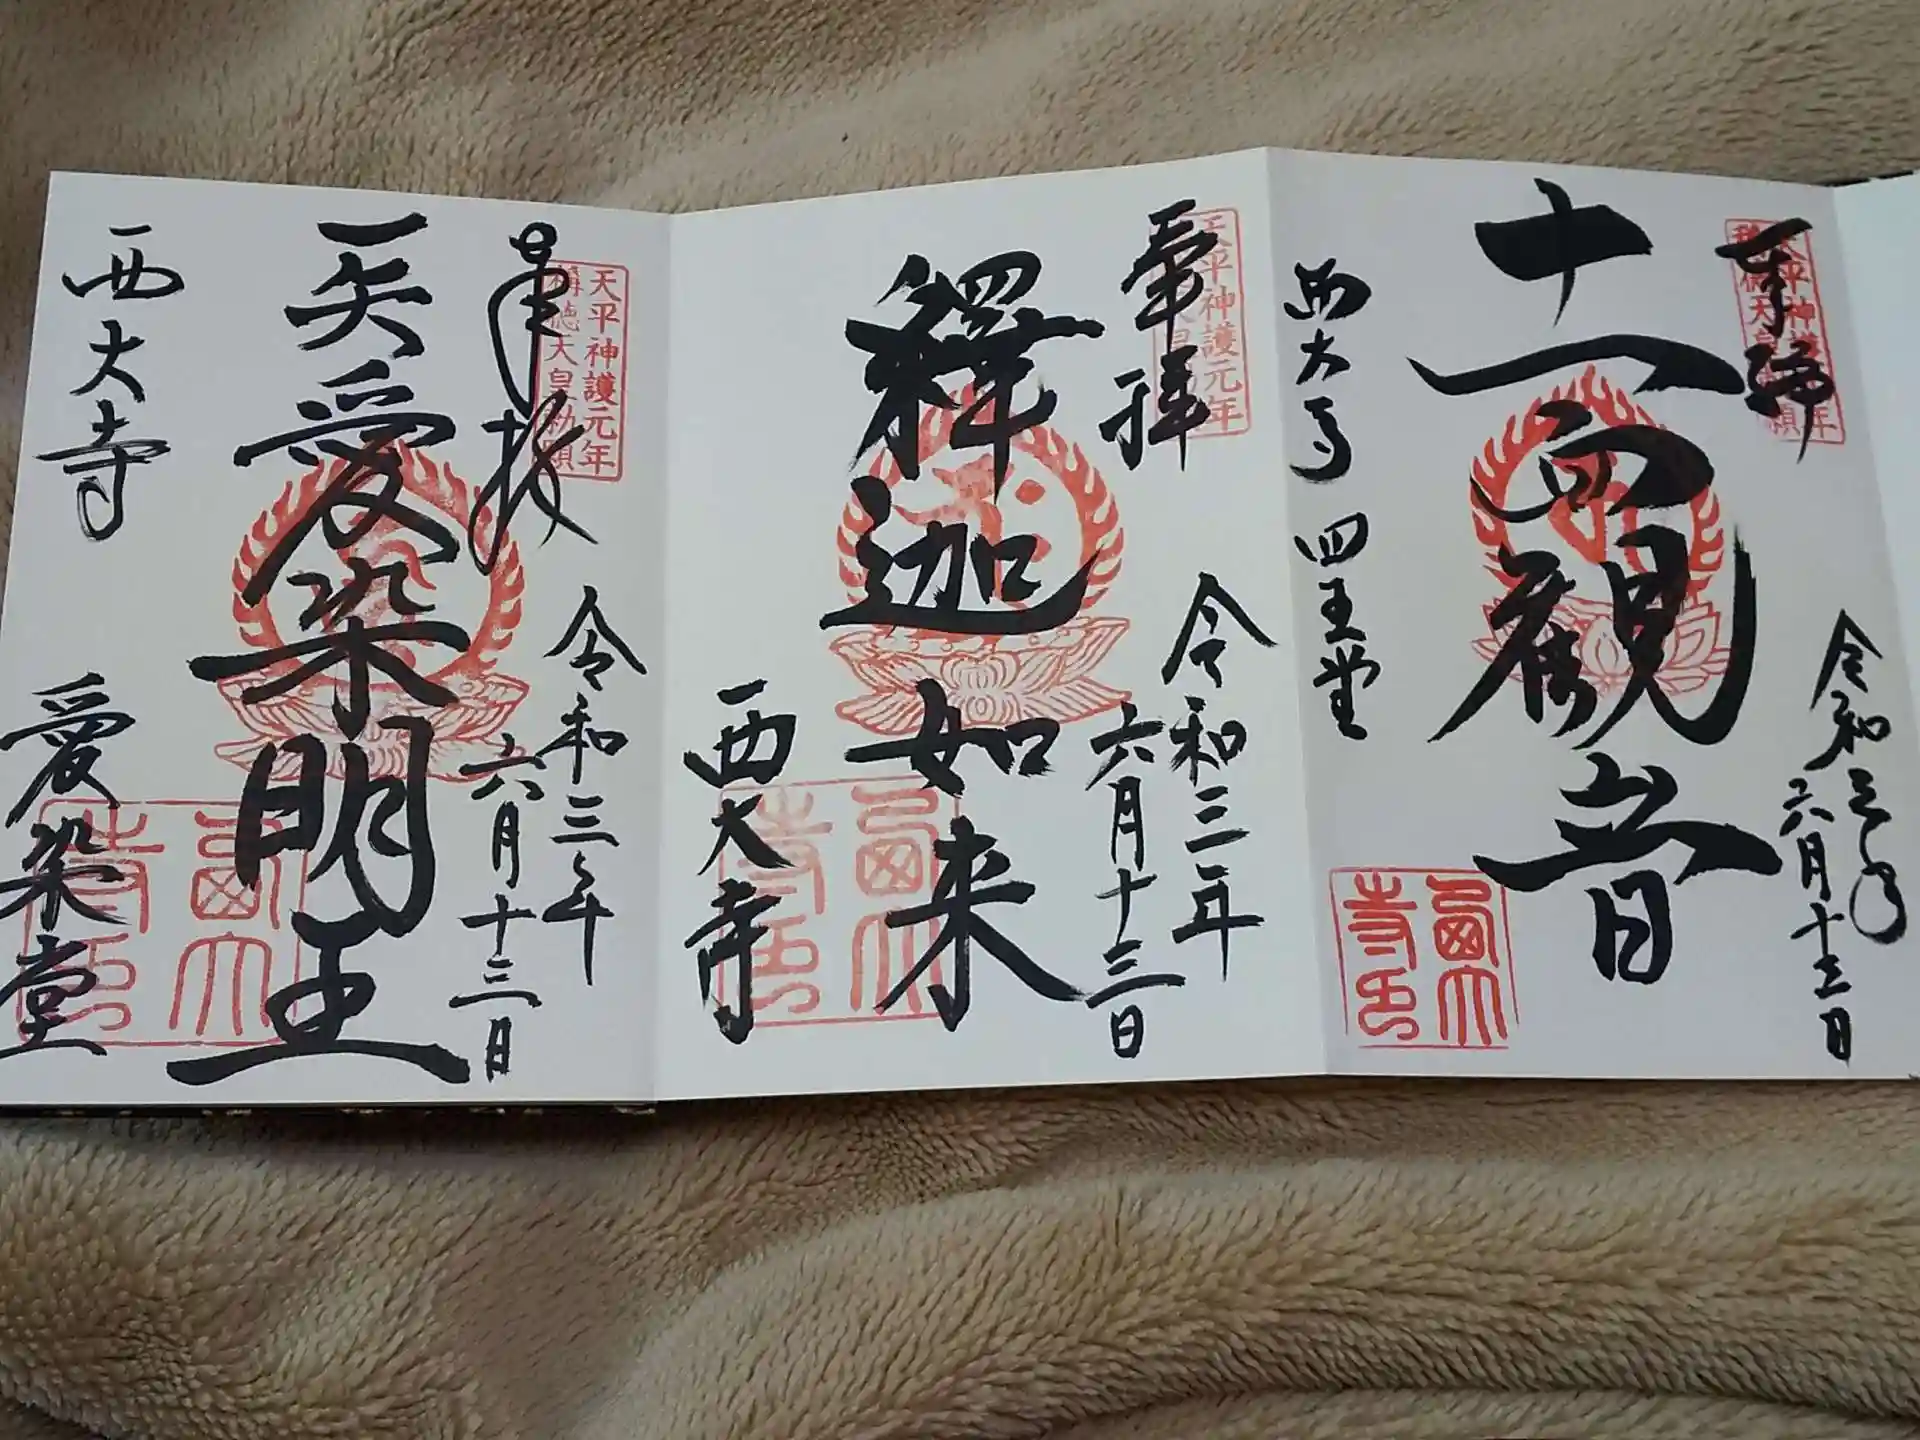 奉拝
天平神護元年
称徳天皇勅願
令和三年
六月十三日
十一面観音
西大寺 四王堂
西大寺印
奉拝
天平神護元年
令和三年
六月十三日
釋迦如来
西大寺
西大寺印
奉拝
天平神護元年
稱徳天皇勅願
令和三年
六月十三日
愛染明王
西大寺
愛染堂
西大寺印